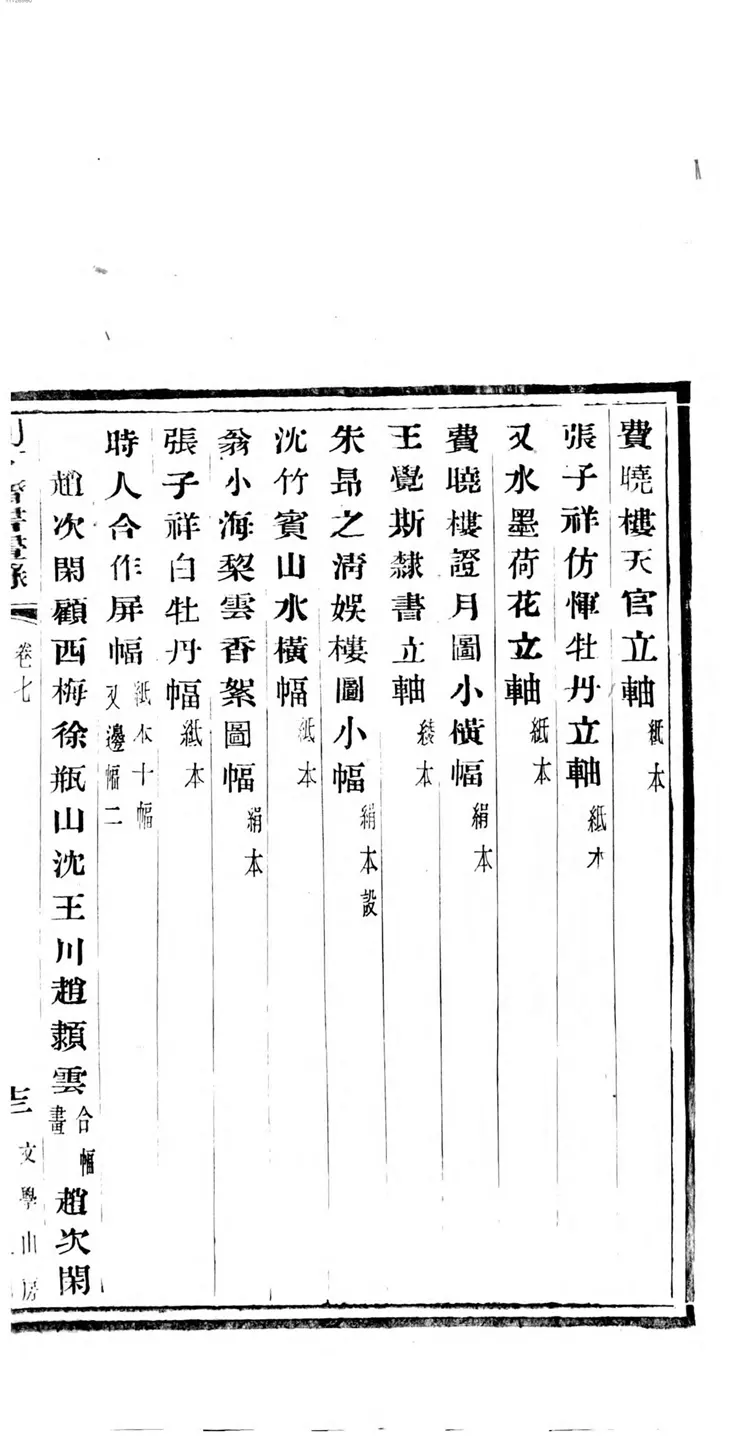 費曉樓天官立軸紙本
張子祥仿惲牡丹立軸紙本
又水墨荷花立軸紙本
費曉樓證月圖小橫幅絹本
王覺斯隸書立軸綾本
朱昂之淸娛樓圖小幅絹本設
沈竹賓山水橫幅紙本
翁小海棃雲香絮圖幅絹本
張子祥白牡丹幅紙本
時人合作屏幅紙本十幅又邊幅二
趙次閑顧西梅徐瓶山沈王川趙顥雲合幅畫趙次閑
書畫錄
卷七
文學山房